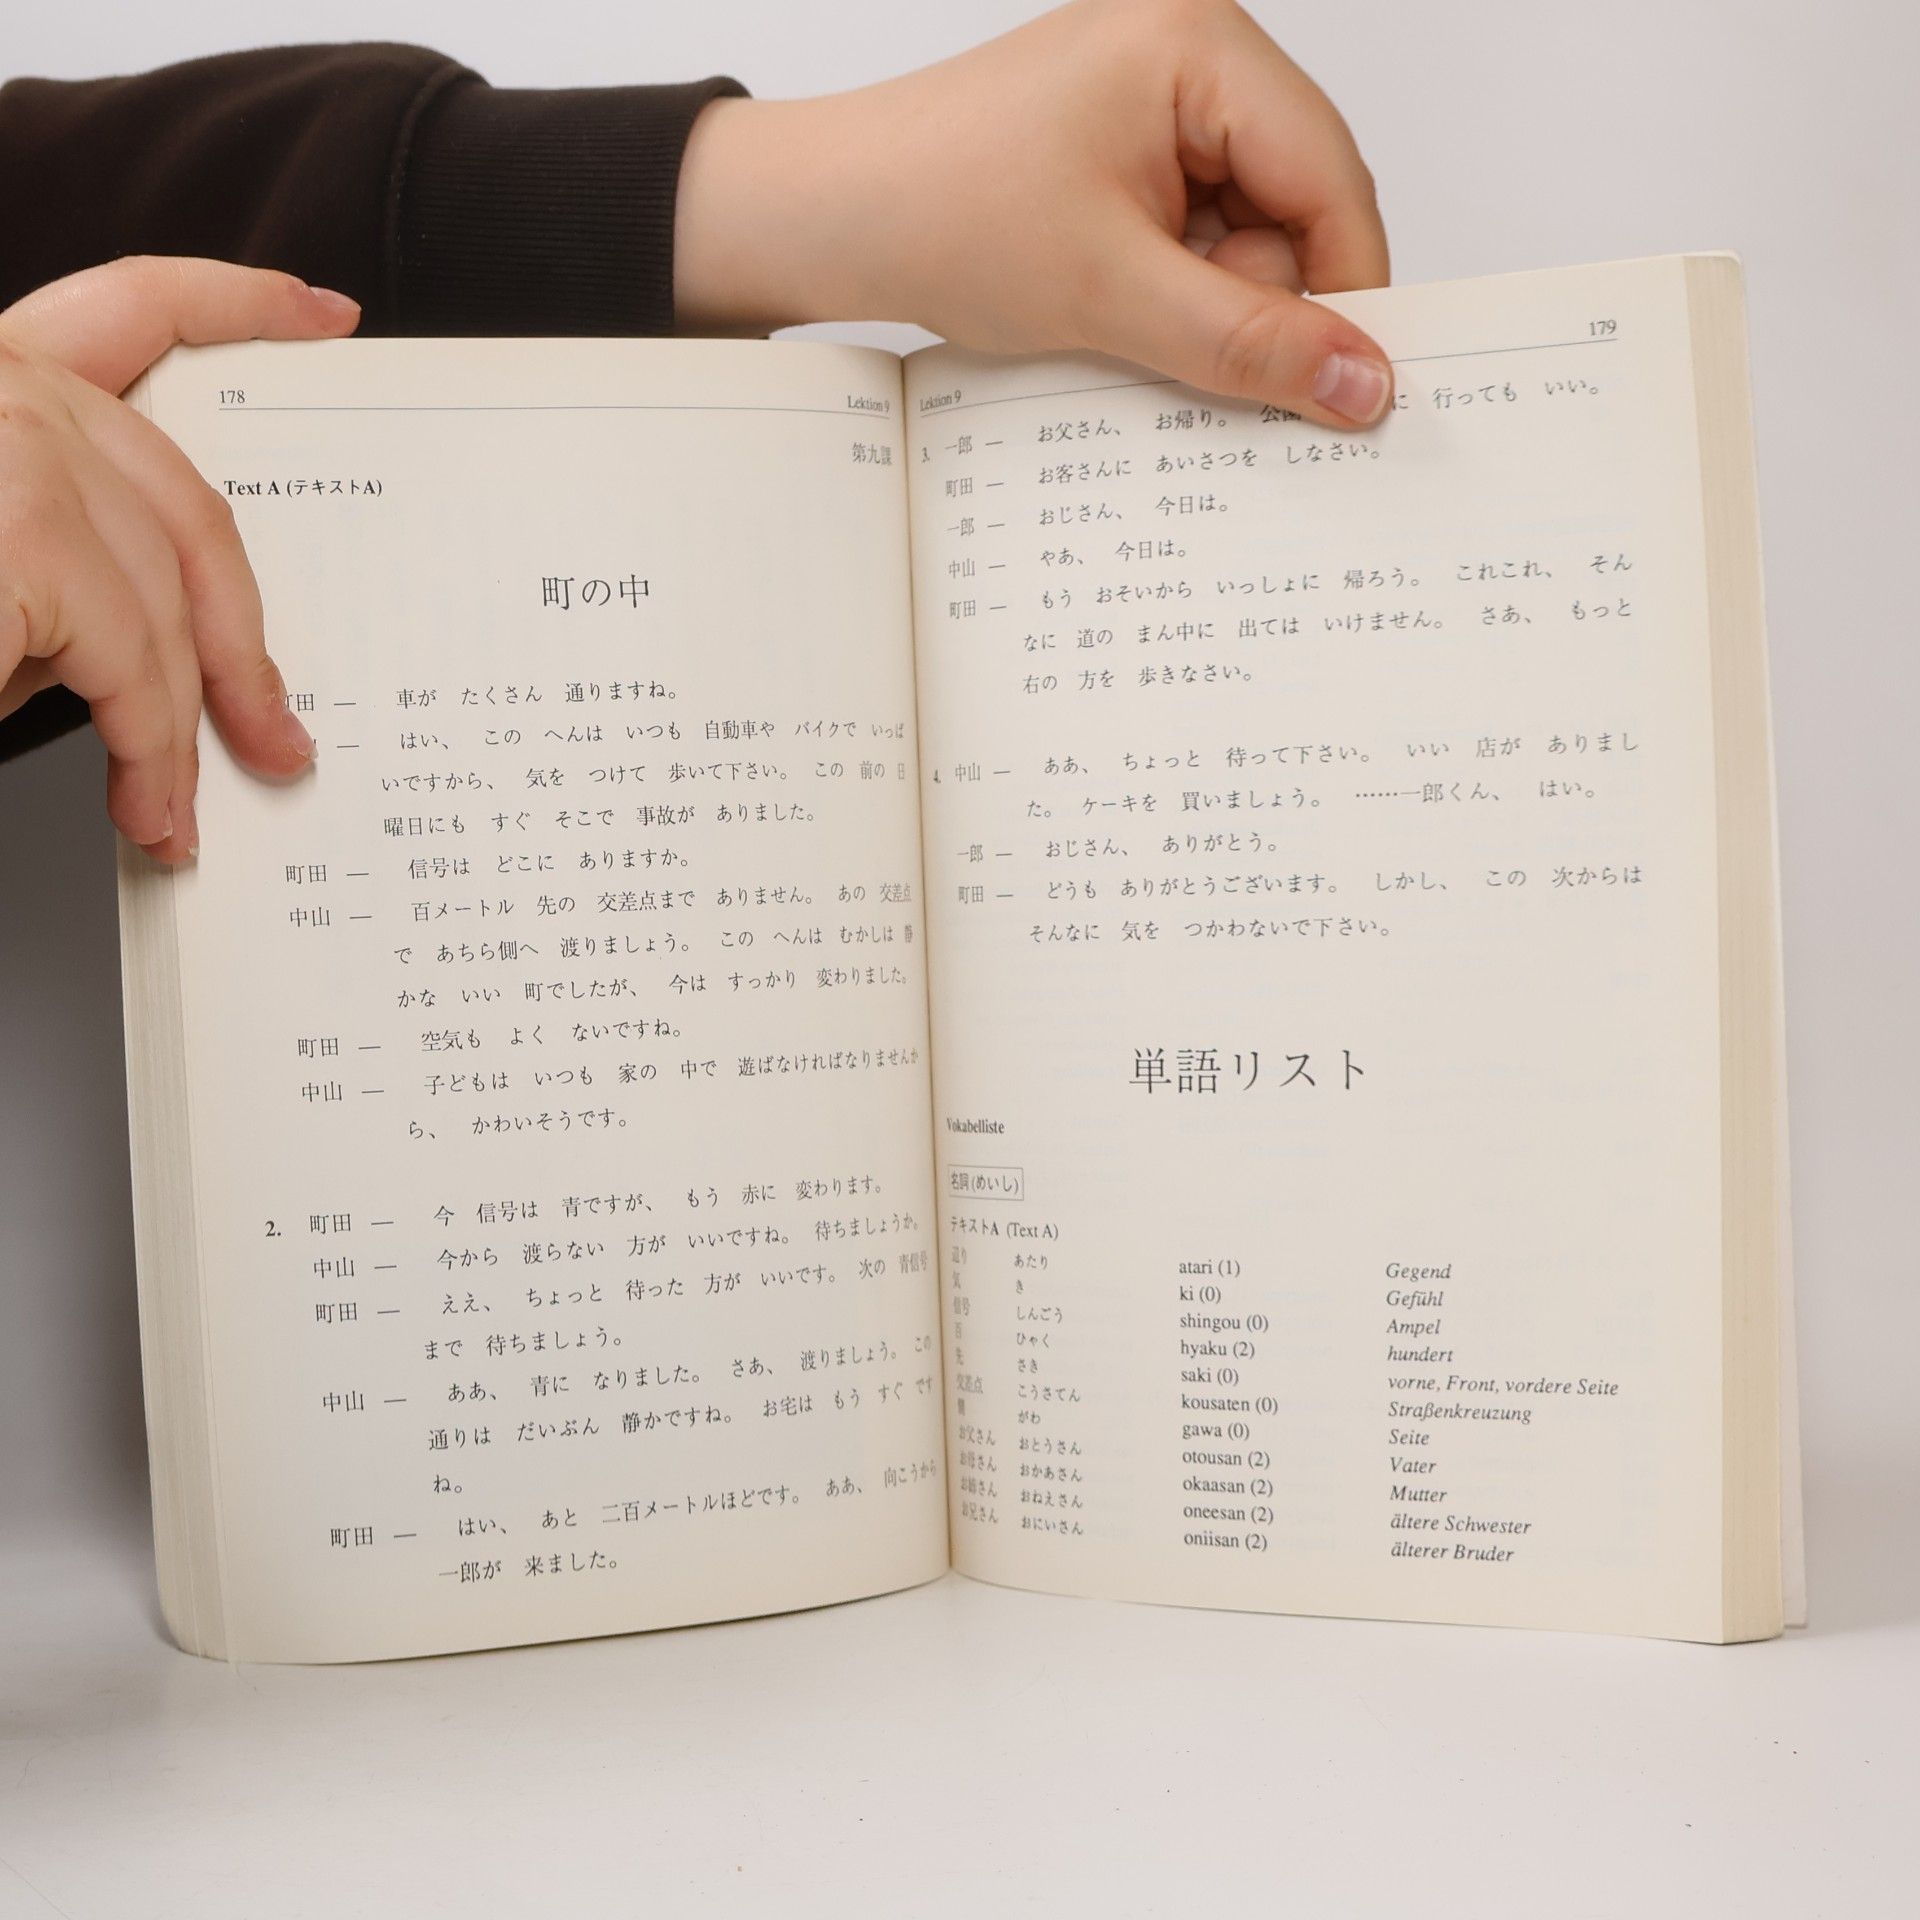 178 Lektion 9
第九課
Text A (テキストA)
町の中
町田 ― 車が たくさん 通りますね。
― はい、 この へんは いつも 自動車や バイクで いっぱ
いですから、 気を つけて 歩いて下さい。 この 前の 日
曜日にも すぐ そこで 事故が ありました。
町田 ― 信号は どこに ありますか。
中山 ― 百メートル 先の 交差点まで ありません。 あの 交差点
で あちら側へ 渡りましょう。 この へんは むかしは 静
かな いい 町でしたが、 今は すっかり 変わりました。
町田 ― 空気も よく ないですね。
中山 ― 子どもは いつも 家の 中で 遊ばなければなりませんか
ら、 かわいそうです。
2. 町田 ― 今 信号は 青ですが、 もう 赤に 変わります。
中山 ― 今から 渡らない 方が いいですね。 待ちましょうか。
町田 ― ええ、 ちょっと 待った 方が いいです。 次の 青信号
まで 待ちましょう。
中山 ― ああ、 青に なりました。 さあ、 渡りましょう。 この
通りは だいぶん 静かですね。 お宅は もう すぐ です
ね。
町田 ― はい、 あと 二百メートルほどです。 ああ、 向こうから
一郎が 来ました。
Lektion 9 179
3. 一郎 ― お父さん、 お帰り。 公園 に 行っても いい。
町田 ― お客さんに あいさつを しなさい。
一郎 ― おじさん、 今日は。
中山 ― やあ、 今日は。
町田 ― もう おそいから いっしょに 帰ろう。 これこれ、 そん
なに 道の まん中に 出ては いけません。 さあ、 もっと
右の 方を 歩きなさい。
4. 中山 ― ああ、 ちょっと 待って下さい。 いい 店が ありまし
た。 ケーキを 買いましょう。 ……一郎くん、 はい。
一郎 ― おじさん、 ありがとう。
町田 ― どうも ありがとうございます。 しかし、 この 次からは
そんなに 気を つかわないで下さい。
単語リスト
Vokabelliste
名詞(めいし)
テキストA (Text A)
辺り あたり atari (1) Gegend
気 き ki (0) Gefühl
信号 しんごう shingou (0) Ampel
百 ひゃく hyaku (2) hundert
先 さき saki (0) vorne, Front, vordere Seite
交差点 こうさてん kousaten (0) Straßenkreuzung
側 がわ gawa (0) Seite
お父さん おとうさん otousan (2) Vater
お母さん おかあさん okaasan (2) Mutter
お姉さん おねえさん oneesan (2) ältere Schwester
お兄さん おにいさん oniisan (2) älterer Bruder